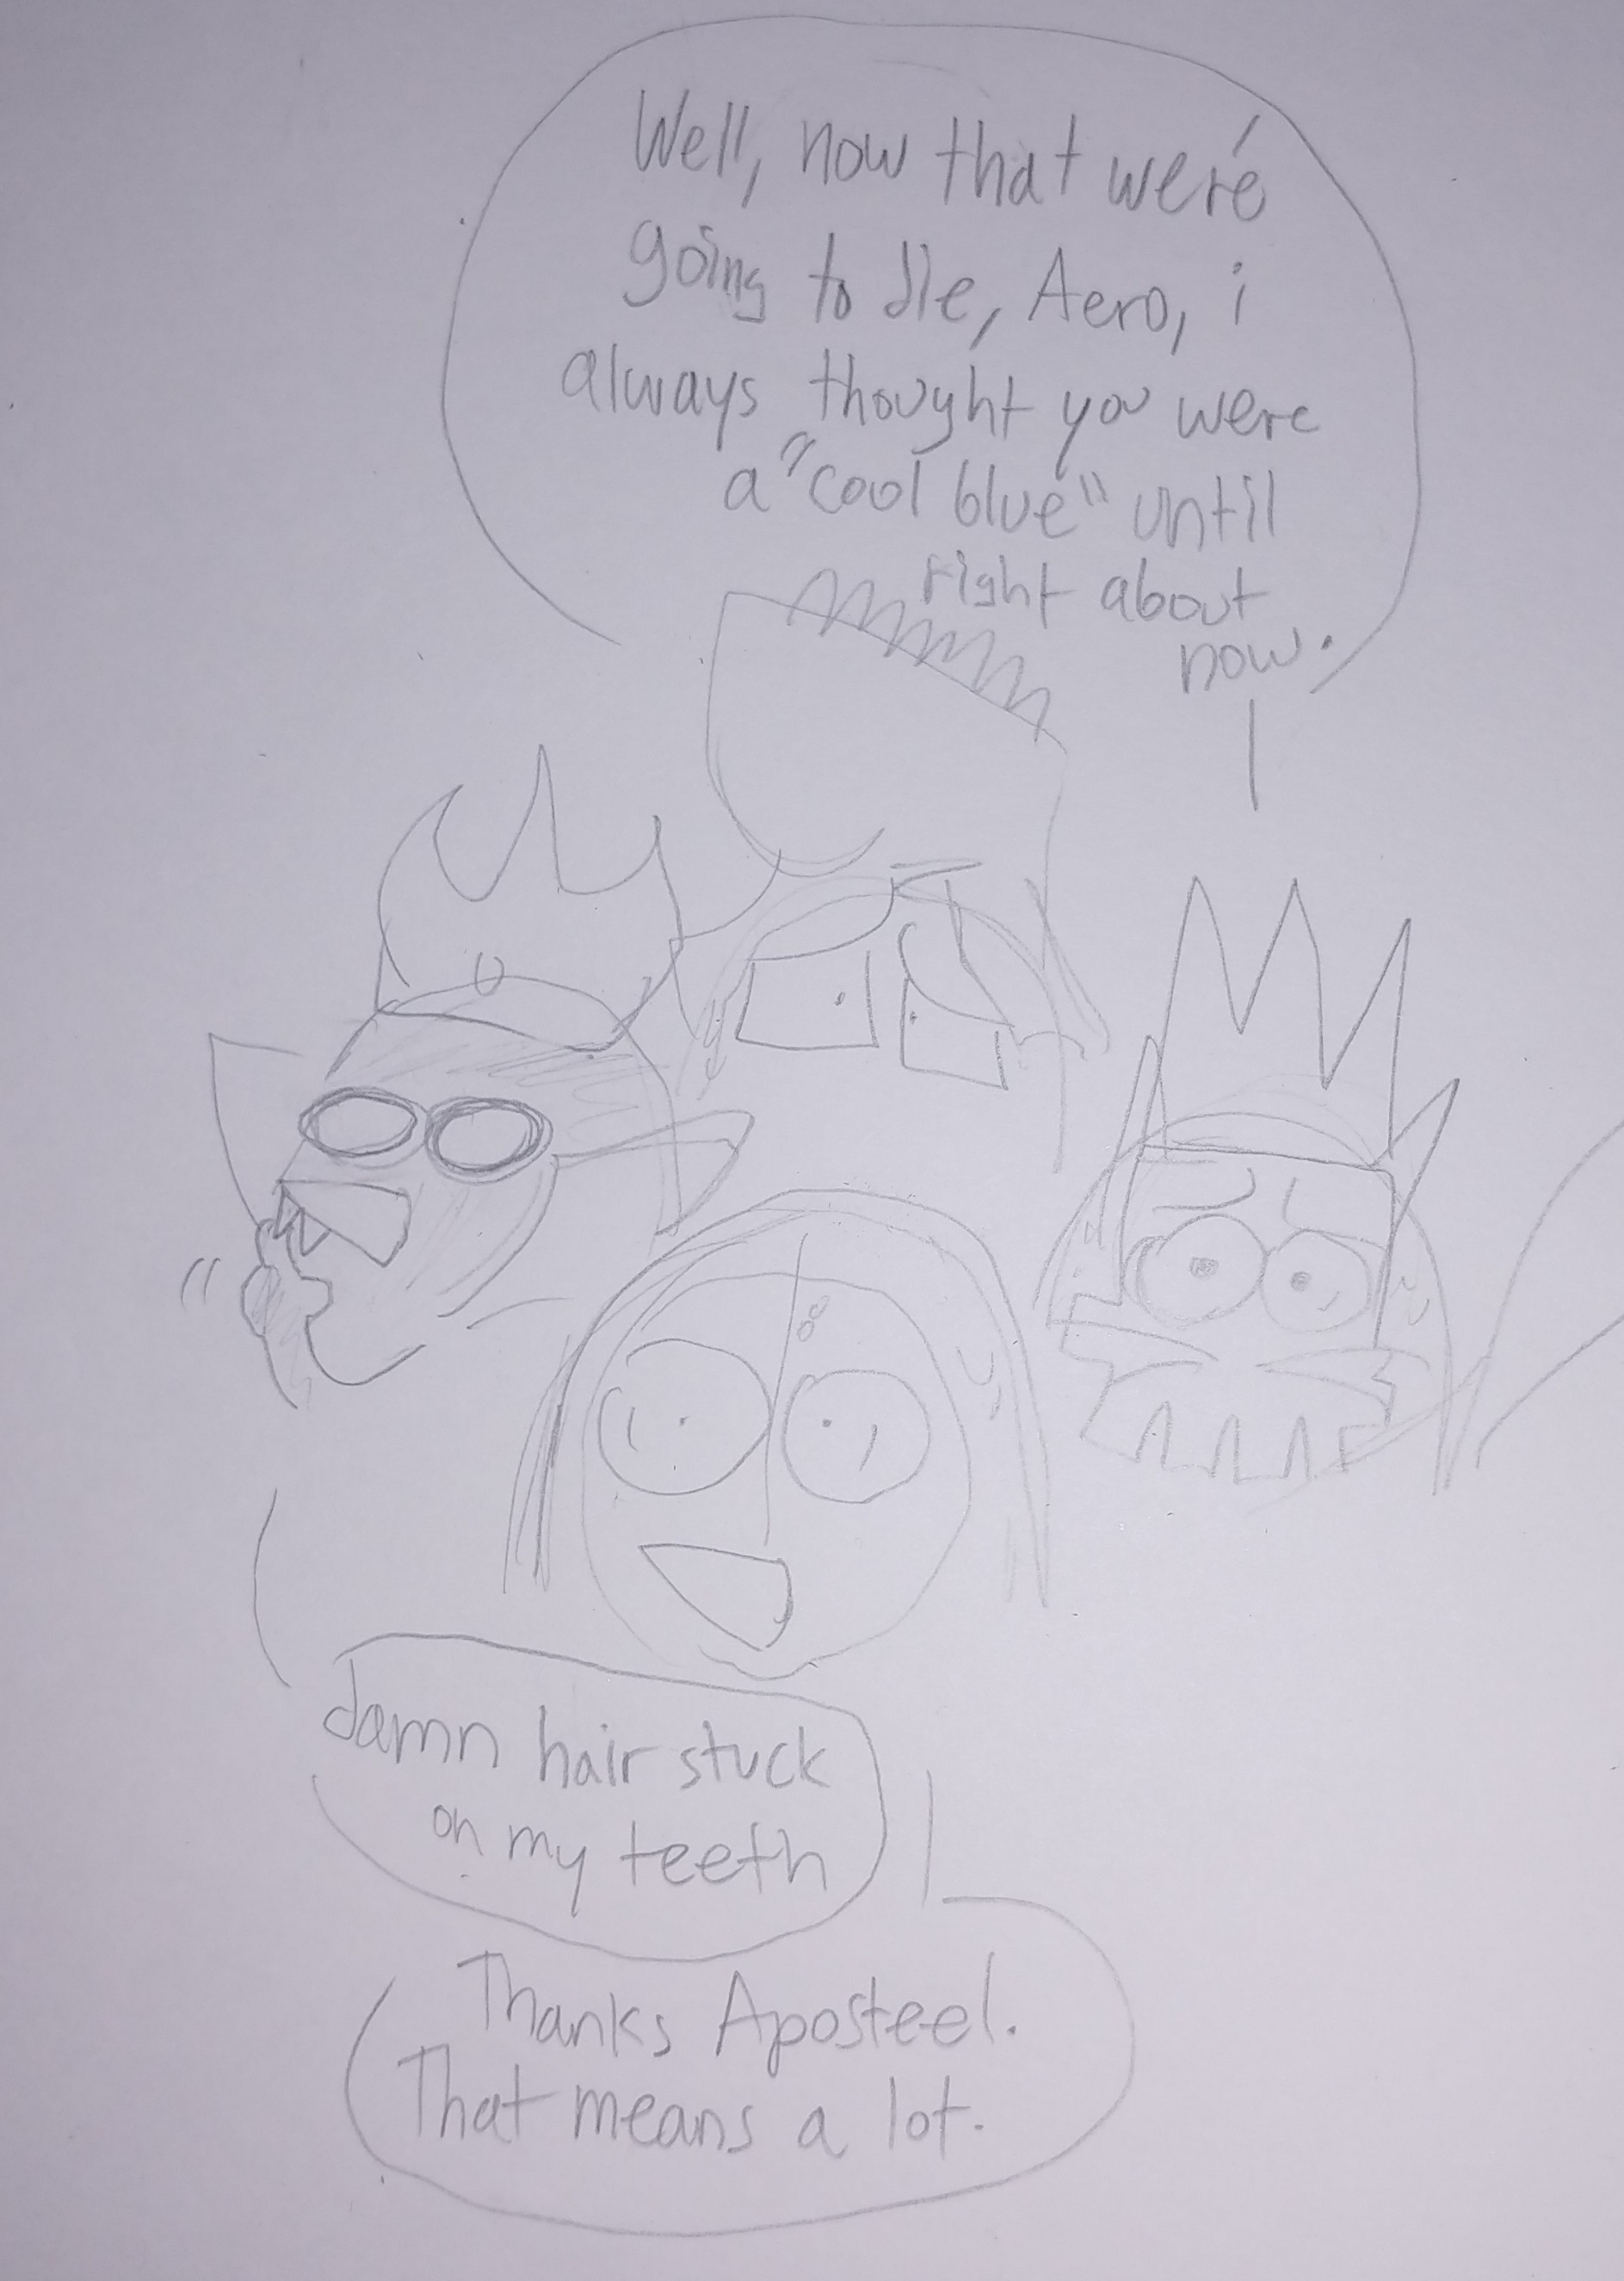 Well, now that we're
going to die, Aero, i
always thought you were
a "cool blue" until
right about
now.
damn hair stuck
on my teeth
Thanks Aposteel.
That means a lot.